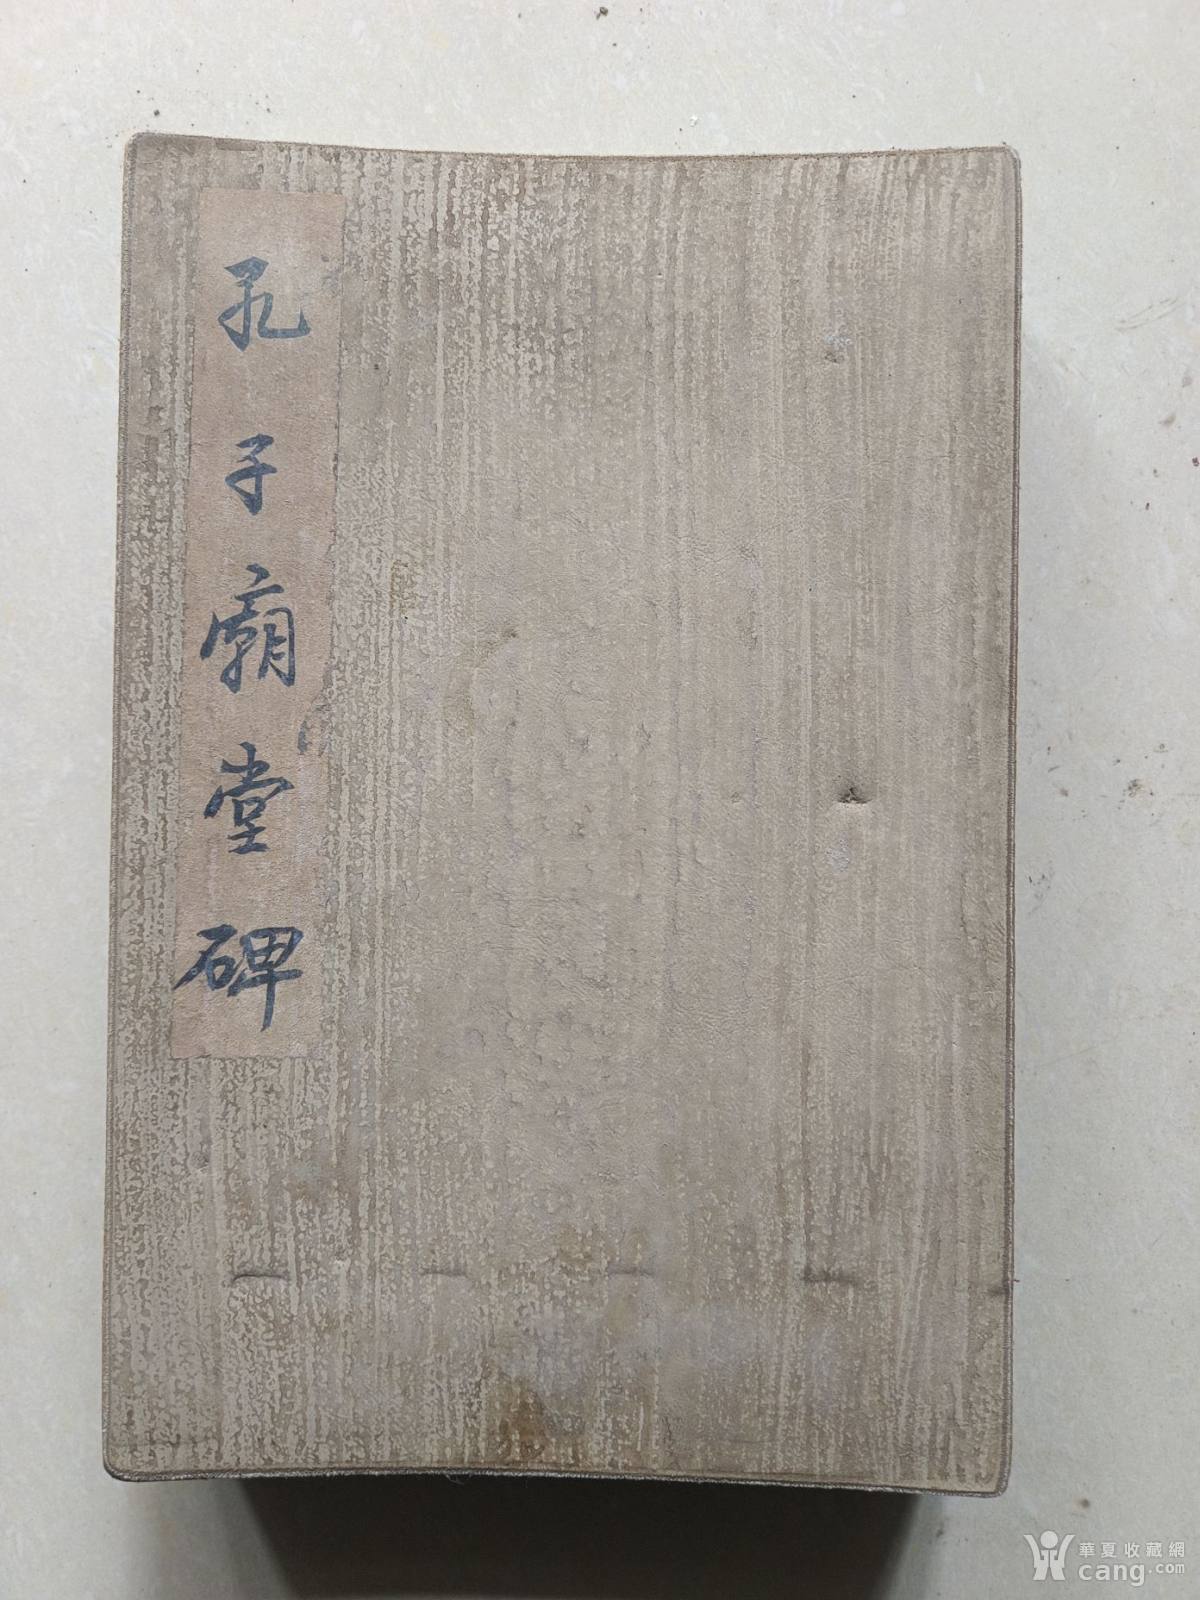 孔子廟堂碑
華夏收藏網
cang.com